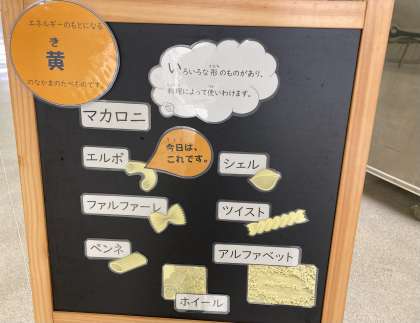 エネルギーのもとになる
き
黄
のなかまのたべものです。
いろいろな形のものがあり、
料理によって使いわけます。
マカロニ
エルボ
今日は、
これです。
シェル
ファルファーレ
ツイスト
ペンネ
アルファベット
ホイール